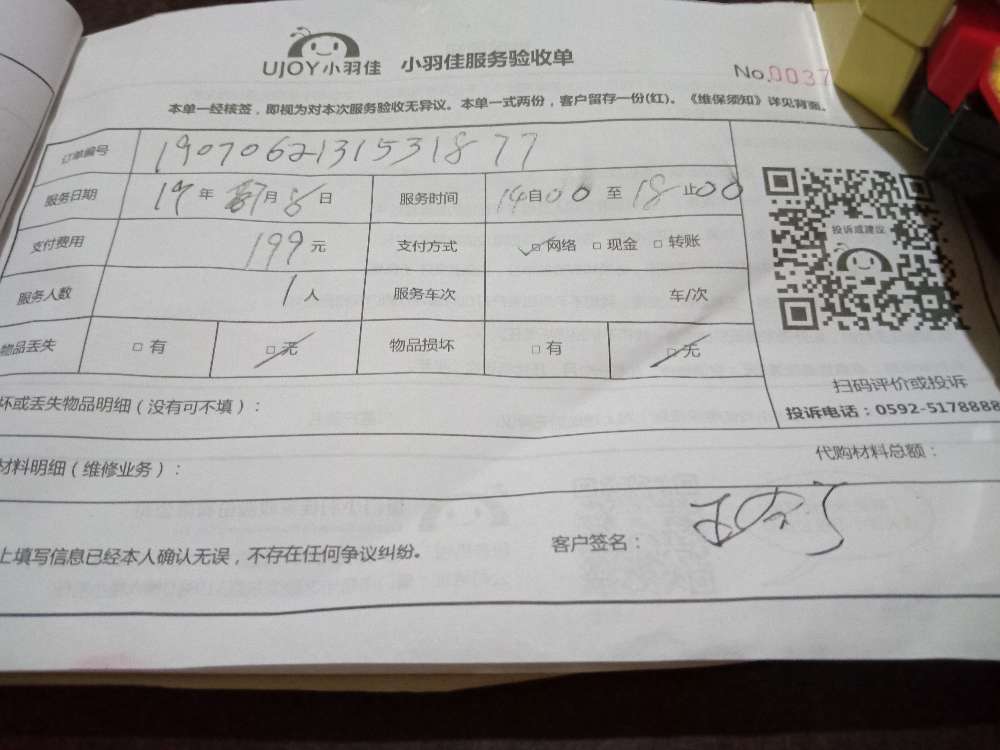 UJOY小羽佳 小羽佳服务验收单
No.0037
本单一经核签，即视为对本次服务验收无异议。本单一式两份，客户留存一份(红)。《维保须知》详见背面。
订单编号 19070621315318 77
服务日期 19 年 7月 8 日 服务时间 14自00 至 18止00
支付费用 199 元 支付方式 ☑网络 □现金 □转账
服务人数 1 人 服务车次 车/次
物品丢失 □有 ☑无 物品损坏 □有 ☑无
投诉或建议
扫码评价或投诉
投诉电话：0592-5178888
坏或丢失物品明细（没有可不填）：
材料明细（维修业务）： 代购材料总额：
上填写信息已经本人确认无误，不存在任何争议纠纷。 客户签名：